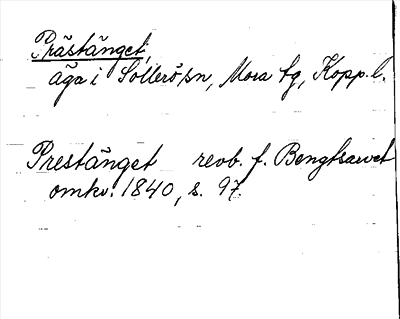 Prästänget,
äga i Sollerö sn, Mora tg, Kopp. l.
Prestänget revb. f. Bengtsarvet
omkr. 1840, s. 97.